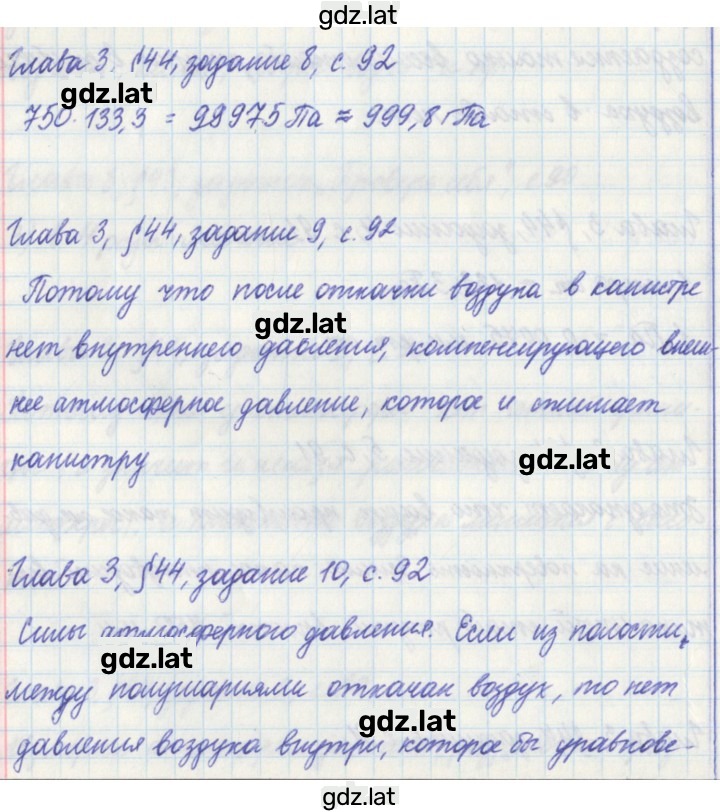 gdz.lat
Глава 3, §44, задание 8, с. 92
gdz.lat
750·133,3 = 99975 Па ≈ 999,8 гПа
Глава 3, §44, задание 9, с. 92
Потому что после откачки воздуха в канистре
gdz.lat
нет внутреннего давления, компенсирующего внеш-
нее атмосферное давление, которое и сжимает
канистру
gdz.lat
Глава 3, §44, задание 10, с. 92
Силы атмосферного давления. Если из полости,
gdz.lat
между полушариями откачан воздух, то нет
gdz.lat
давления воздуха внутри, которое бы уравнове-
gdz.lat